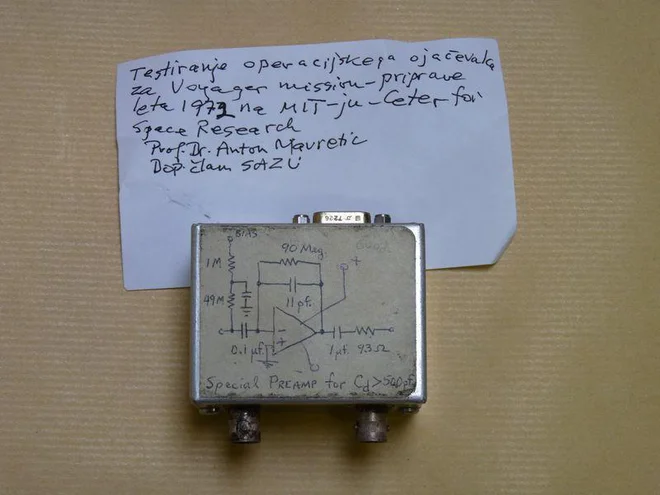 Testiranje operacijskega ojačevalca
za Voyager mission-priprave
leta 1972 na MIT-ju-Ceter for
Space Research
Prof. Dr. Anton Mavretic
Dop. član SAZU
7226
BIAS
90 Meg.
+
1M
11 pf.
49M
-
+
0.1 µf.
1µf.
93Ω
Special PREAMP for Cd>500pf.